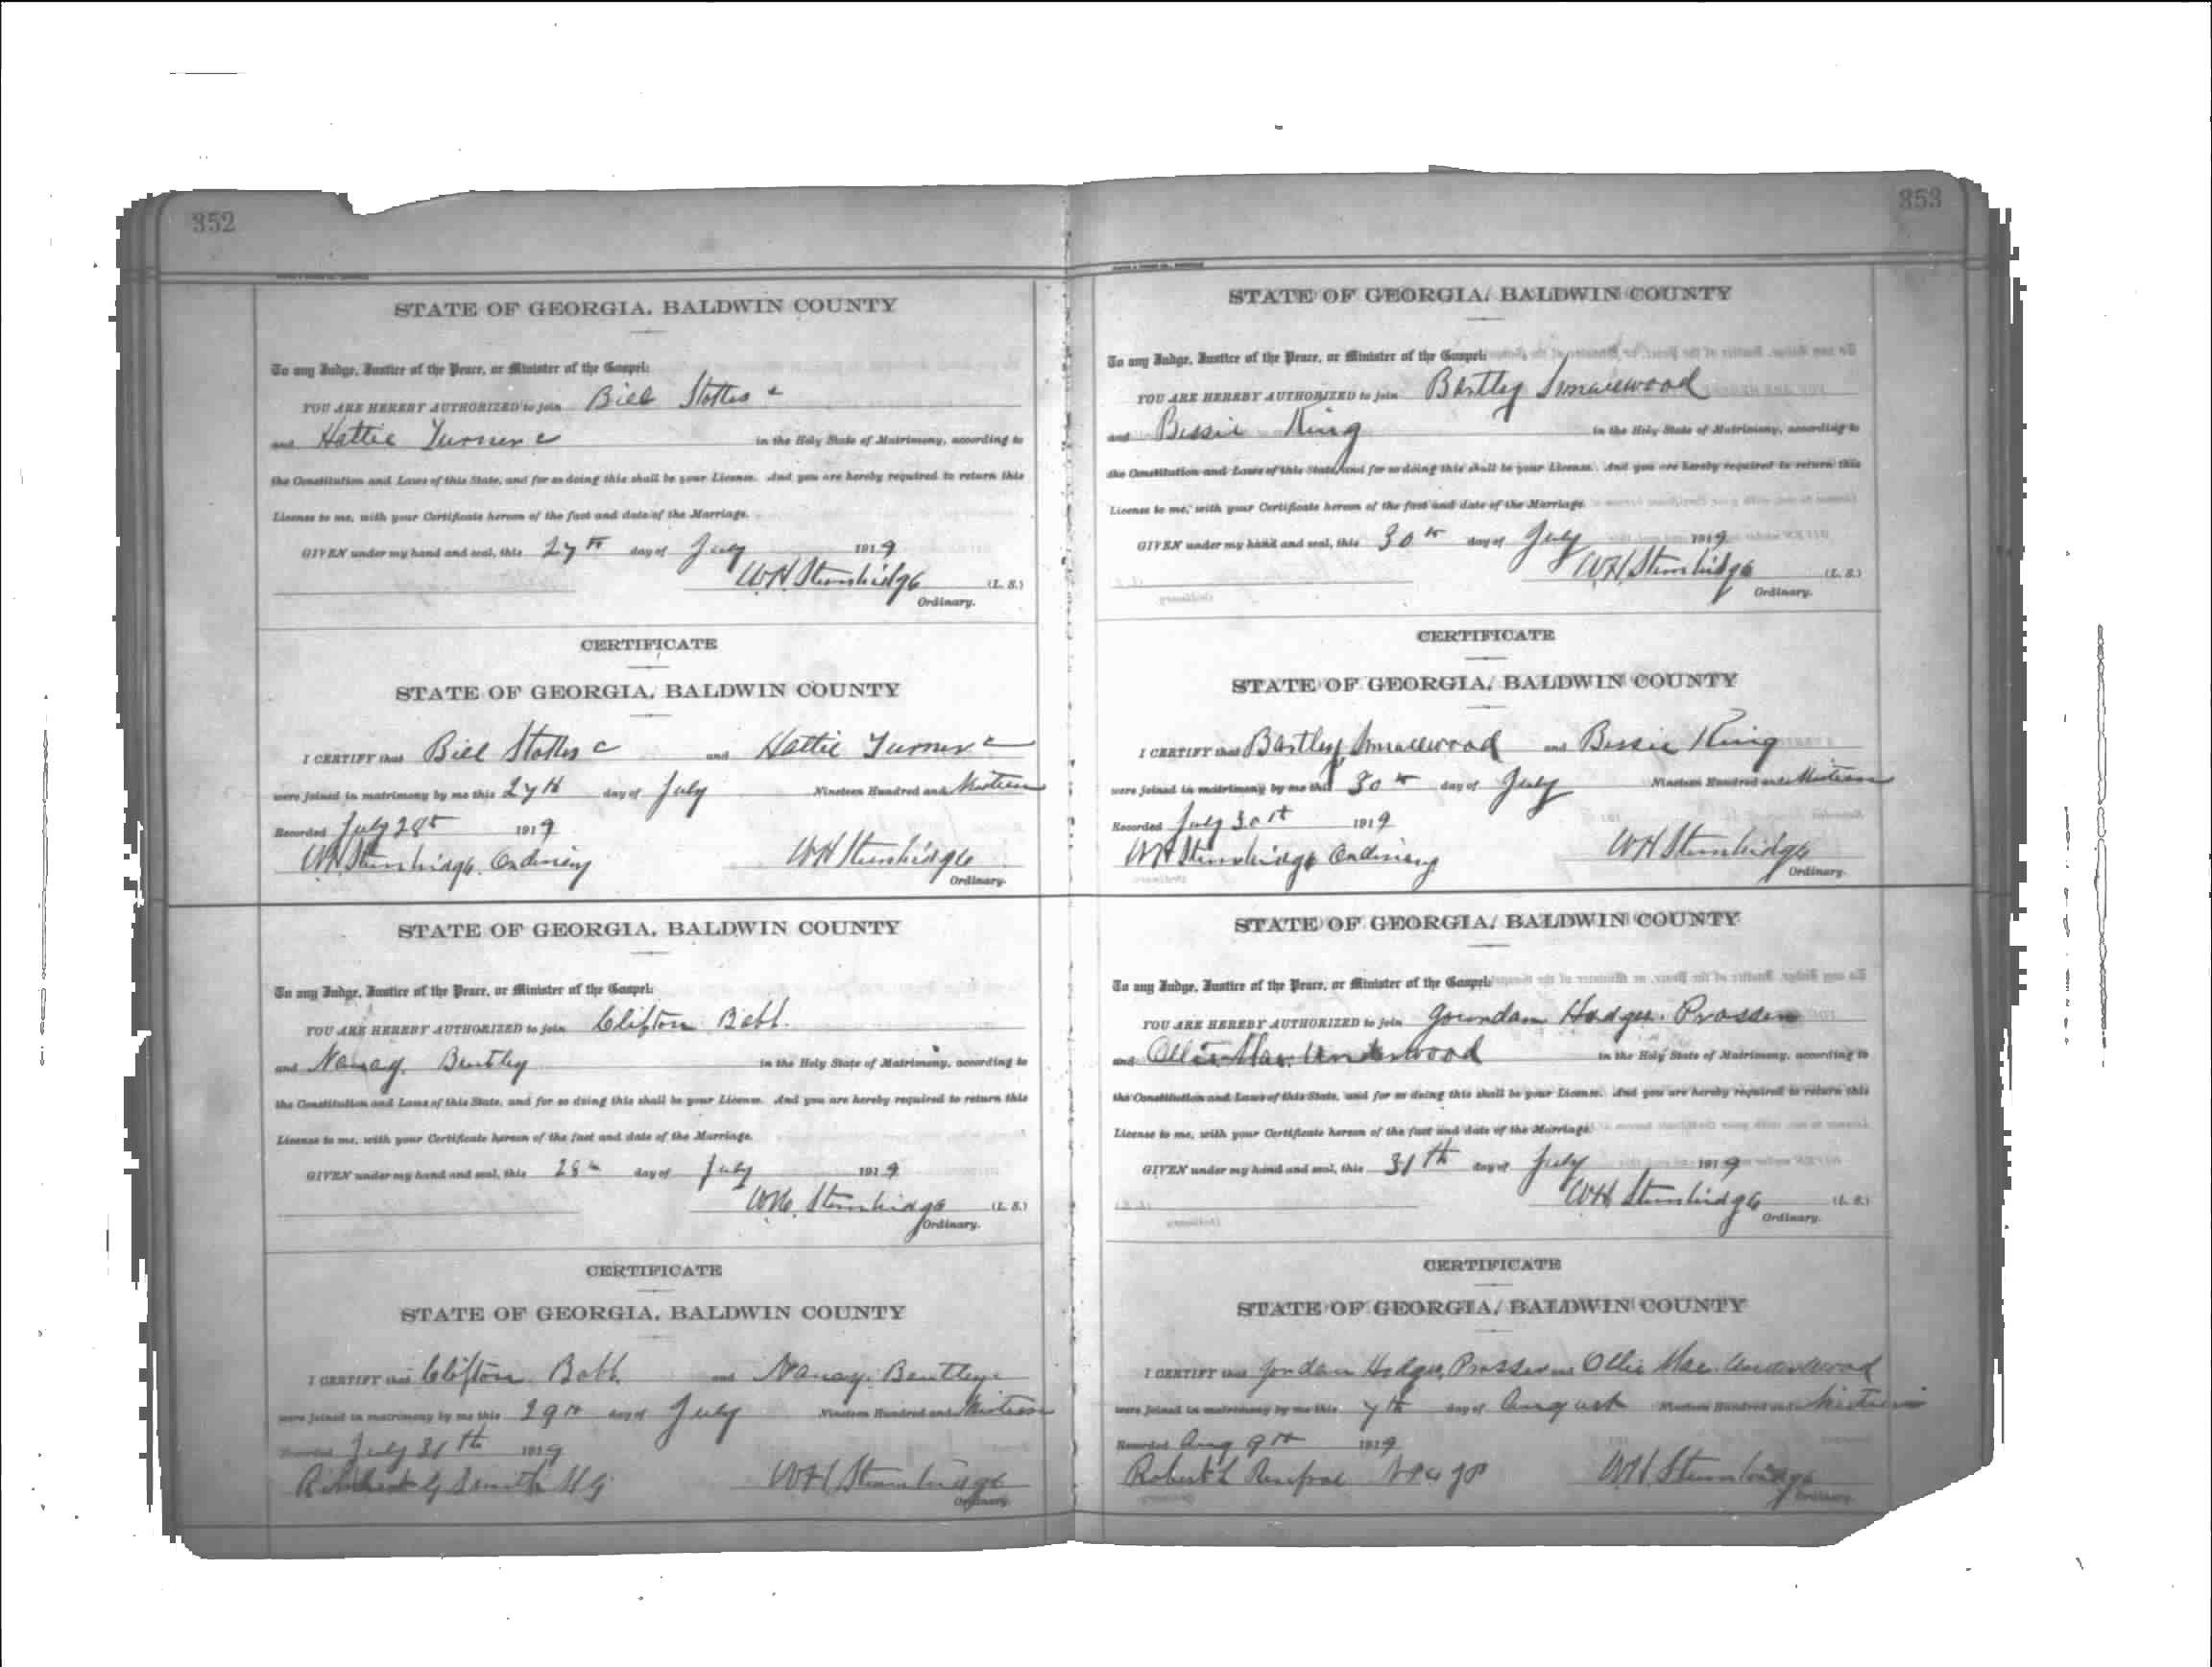 352
STATE OF GEORGIA, BALDWIN COUNTY
To any Judge, Justice of the Peace, or Minister of the Gospel:
YOU ARE HEREBY AUTHORIZED to join Bill Stottes c
and Hattie Turner c in the Holy State of Matrimony, according to
the Constitution and Laws of this State, and for so doing this shall be your License. And you are hereby required to return this
License to me, with your Certificate hereon of the fact and date of the Marriage.
GIVEN under my hand and seal, this 27th day of July 1919
W.H. Stembridge (L. S.)
Ordinary.
CERTIFICATE
STATE OF GEORGIA, BALDWIN COUNTY
I CERTIFY that Bill c and Hattie Turner c
were joined in matrimony by me this 27th day of July Nineteen Hundred and Nineteen
Recorded July 28th 1919
W.H. Stembridge. Ordinary W H Stembridge
Ordinary.
STATE OF GEORGIA, BALDWIN COUNTY
To any Judge, Justice of the Peace, or Minister of the Gospel:
YOU ARE HEREBY AUTHORIZED to join Clifton Babb.
and Nancy. Bentley in the Holy State of Matrimony, according to
the Constitution and Laws of this State, and for so doing this shall be your License. And you are hereby required to return this
License to me, with your Certificate hereon of the fact and date of the Marriage.
GIVEN under my hand and seal, this 28th day of July 1919
W.H. Stembridge (L. S.)
Ordinary.
CERTIFICATE
STATE OF GEORGIA, BALDWIN COUNTY
I CERTIFY that Clifton Babb and Nancy. Bentley
were joined in matrimony by me this 29th day of July Nineteen Hundred and Nineteen
Recorded July 31th 1919
Smith M G W H Stembridge
Ordinary.
353
STATE OF GEORGIA, BALDWIN COUNTY
To any Judge, Justice of the Peace, or Minister of the Gospel:
YOU ARE HEREBY AUTHORIZED to join Bartley Smallwood
and Bessie King in the Holy State of Matrimony, according to
the Constitution and Laws of this State, and for so doing this shall be your License. And you are hereby required to return this
License to me, with your Certificate hereon of the fact and date of the Marriage.
GIVEN under my hand and seal, this 30th day of July 1919
W H Stembridge (L. S.)
Ordinary.
CERTIFICATE
STATE OF GEORGIA, BALDWIN COUNTY
I CERTIFY that Bartley Smallwood and Bessie King
were joined in matrimony by me this 30th day of July Nineteen Hundred and Nineteen
Recorded July 30th 1919
W H Stembridge Ordinary W H Stembridge
Ordinary.
STATE OF GEORGIA, BALDWIN COUNTY
To any Judge, Justice of the Peace, or Minister of the Gospel:
YOU ARE HEREBY AUTHORIZED to join Jourdan Hodges. Prosser
and Ollie Mae. Underwood in the Holy State of Matrimony, according to
the Constitution and Laws of this State, and for so doing this shall be your License. And you are hereby required to return this
License to me, with your Certificate hereon of the fact and date of the Marriage.
GIVEN under my hand and seal, this 31th day of July 1919
W H Stembridge (L. S.)
Ordinary.
CERTIFICATE
STATE OF GEORGIA, BALDWIN COUNTY
I CERTIFY that Jordan Hodges, Prosser and Ollie Mae. Underwood
were joined in matrimony by me this 7th day of August Nineteen Hundred and Nineteen
Recorded Aug 9th 1919
Robert L W H Stembridge
Ordinary.